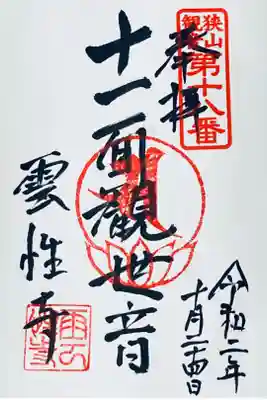 狭山
観音
第十八番
奉拝
十一面観世音
雲性寺
令和二年
十月二十四日